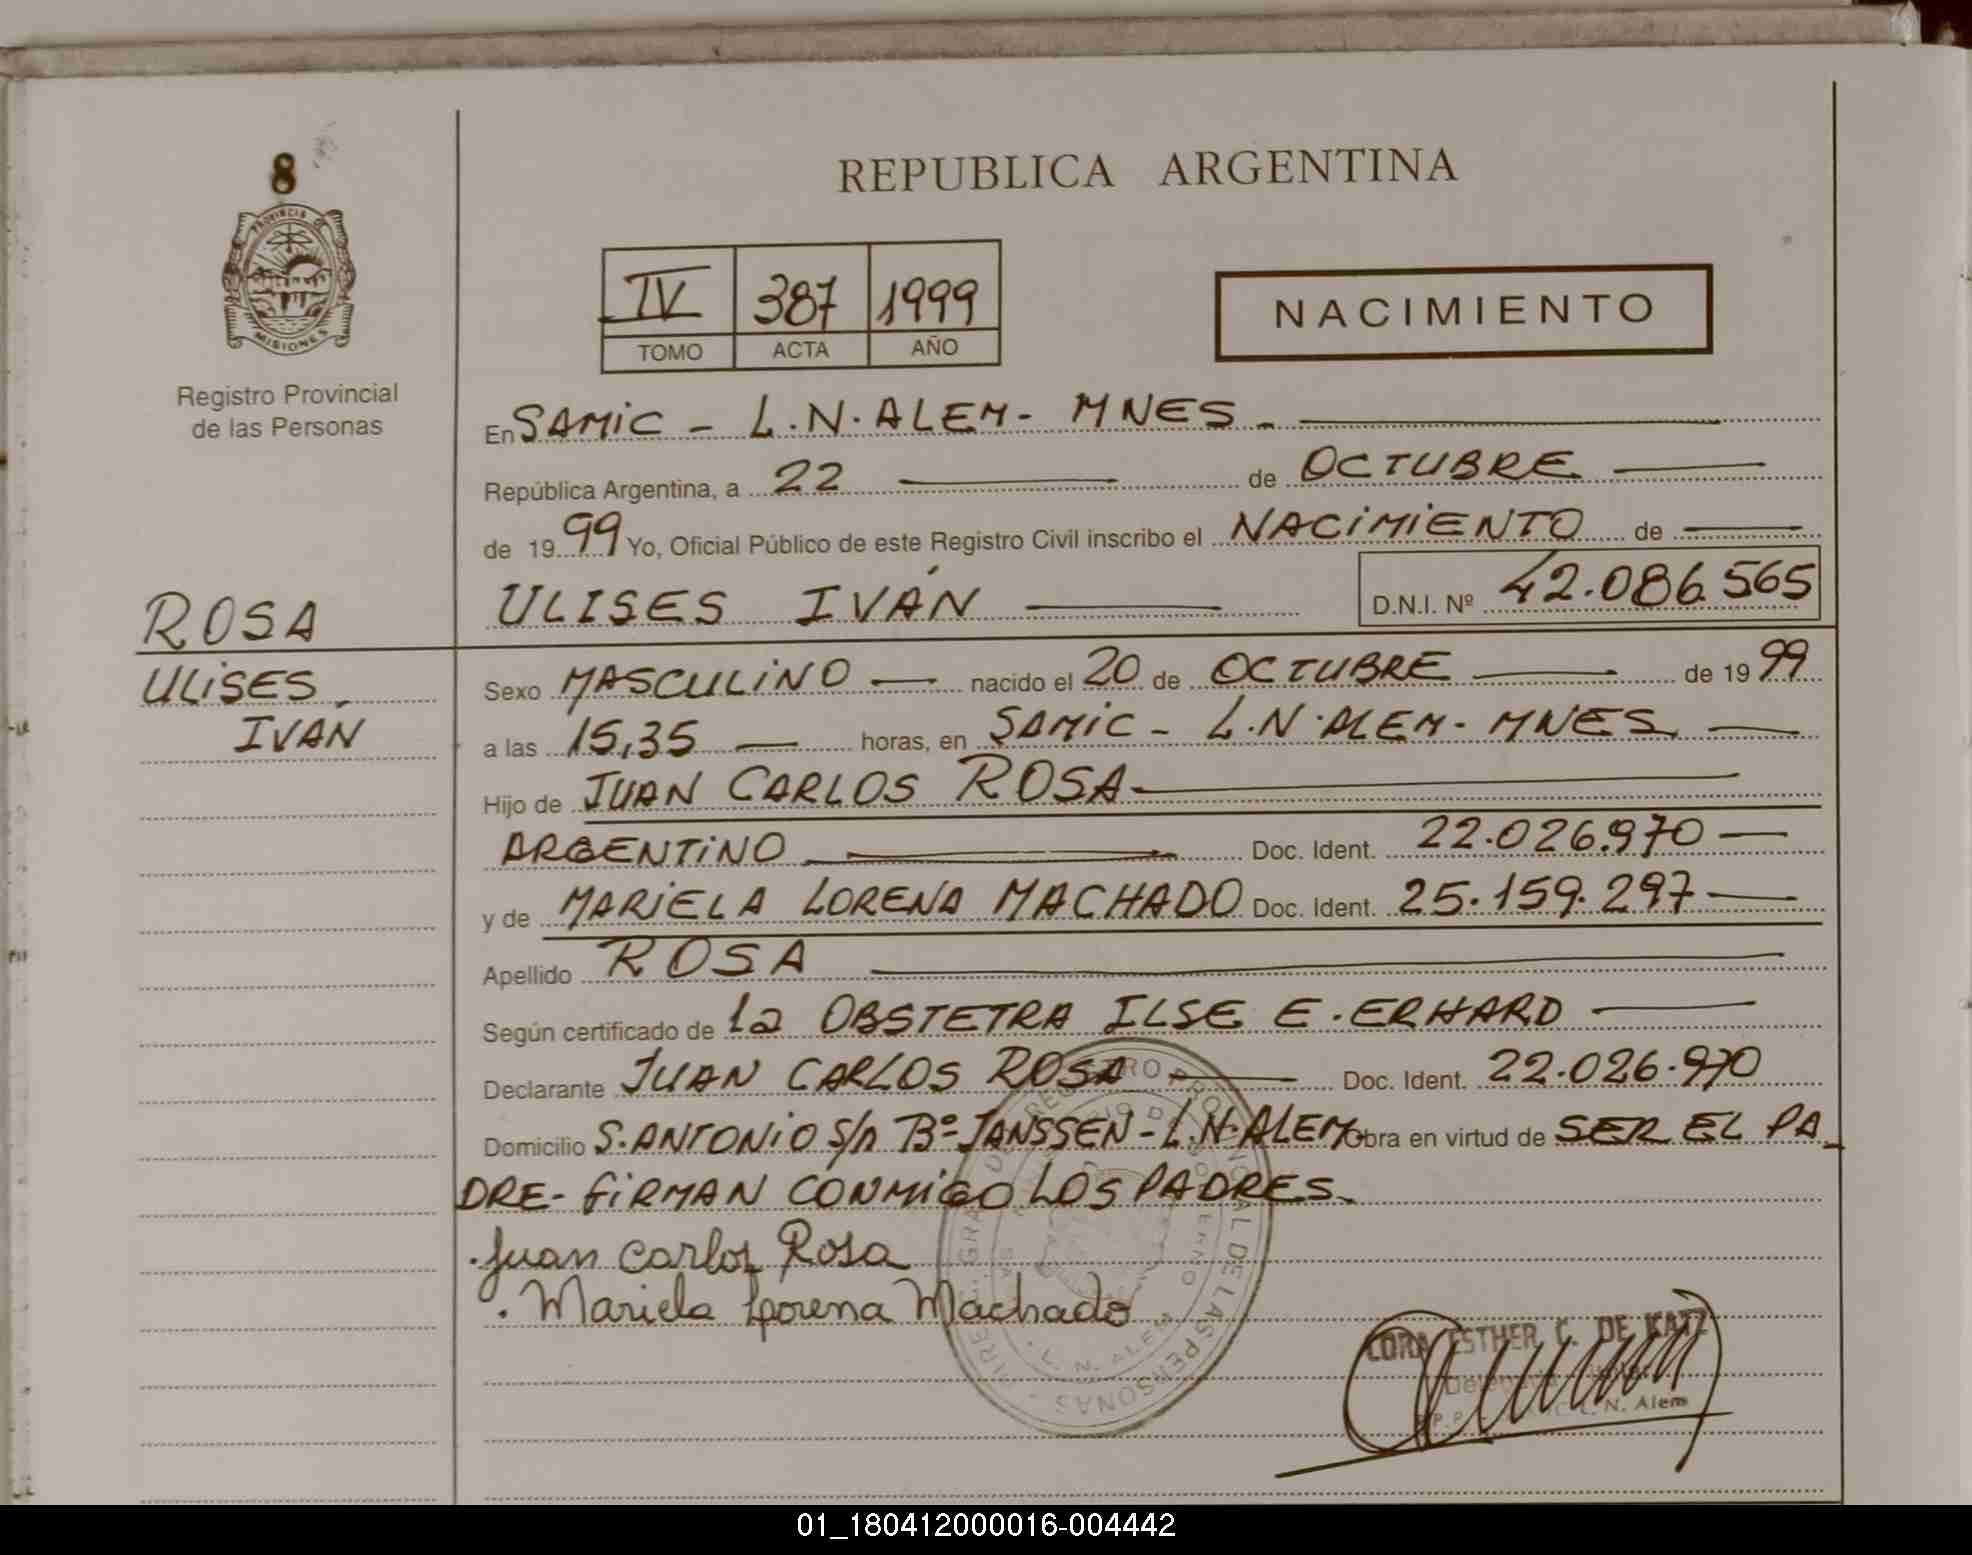 8
PROVINCIA DE
MISIONES
Registro Provincial
de las Personas
REPUBLICA ARGENTINA
IV 387 1999
TOMO ACTA AÑO
NACIMIENTO
En SAMIC - L.N. ALEM - MNES.
República Argentina, a 22 de OCTUBRE
de 1999 Yo, Oficial Público de este Registro Civil inscribo el NACIMIENTO de
ULISES IVÁN D.N.I. Nº 42.086.565
ROSA
ULISES
IVÁN
Sexo MASCULINO nacido el 20 de OCTUBRE de 1999
a las 15,35 horas, en SAMIC - L.N. ALEM - MNES.
Hijo de JUAN CARLOS ROSA
ARGENTINO Doc. Ident. 22.026.970
y de MARIELA LORENA MACHADO Doc. Ident. 25.159.297
Apellido ROSA
Según certificado de la OBSTETRA ILSE E. ERHARD
Declarante JUAN CARLOS ROSA Doc. Ident. 22.026.970
Domicilio S. ANTONIO S/n Bº JANSSEN - L.N. ALEM Obra en virtud de SER EL PA-
DRE - FIRMAN CONMIGO LOS PADRES.
Juan Carlos Rosa
Mariela Lorena Machado
PROVINCIAL DE LAS PERSONAS
L. N. ALEM
CORA ESTHER C. DE KATZ
L. N. Alem
01_180412000016-004442